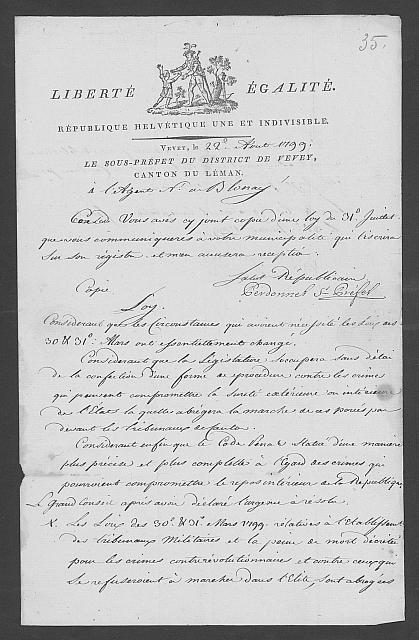 35.
LIBERTÉ ÉGALITÉ.
RÉPUBLIQUE HELVÉTIQUE UNE ET INDIVISIBLE.
Vevey, le 22e. Aout 1799.
LE SOUS-PRÉFET DU DISTRICT DE VEVEY,
CANTON DU LÉMAN.
à l'Agent Nl. de Blonay!
Vous avés cy joint copie d'une loy du 31e. Juillet
que vous communiquerés à votre municipalité qui l'ecrira
sur son régistre et m'en accusera reception.
Salut Républicain
Perdonnet Ss Préfet
Copie
Loy
Considerant que les Circonstances qui avoient nécéssité les Loix des
30 & 31e. Mars ont essentiellement changé.
Considerant que la Législature s'occupera sans délai
de la confection d'une forme de procedure contre les crimes
qui peuvent compromettre la Sureté extérieure ou intérieure
de l'Etat, la quelle abrégera la marche de ces
devant les tribunaux
Considerant enfin que le Code Penal Statue d'une manière
plus précise et plus complette à l'égard des crimes qui
pourroient compromettre le repos intérieur de la République
Le Grand Conseil après avoir déclaré l'urgence a résolu
Les Loix des 30e. & 31e. Mars 1799. relatives à l'Etablissement
des tribunaux Militaires et la peine de mort décretée
pour les crimes contrerévolutionnaires et contre ceux qui
se refuseroient à marcher dans l'Elite, sont abrogées